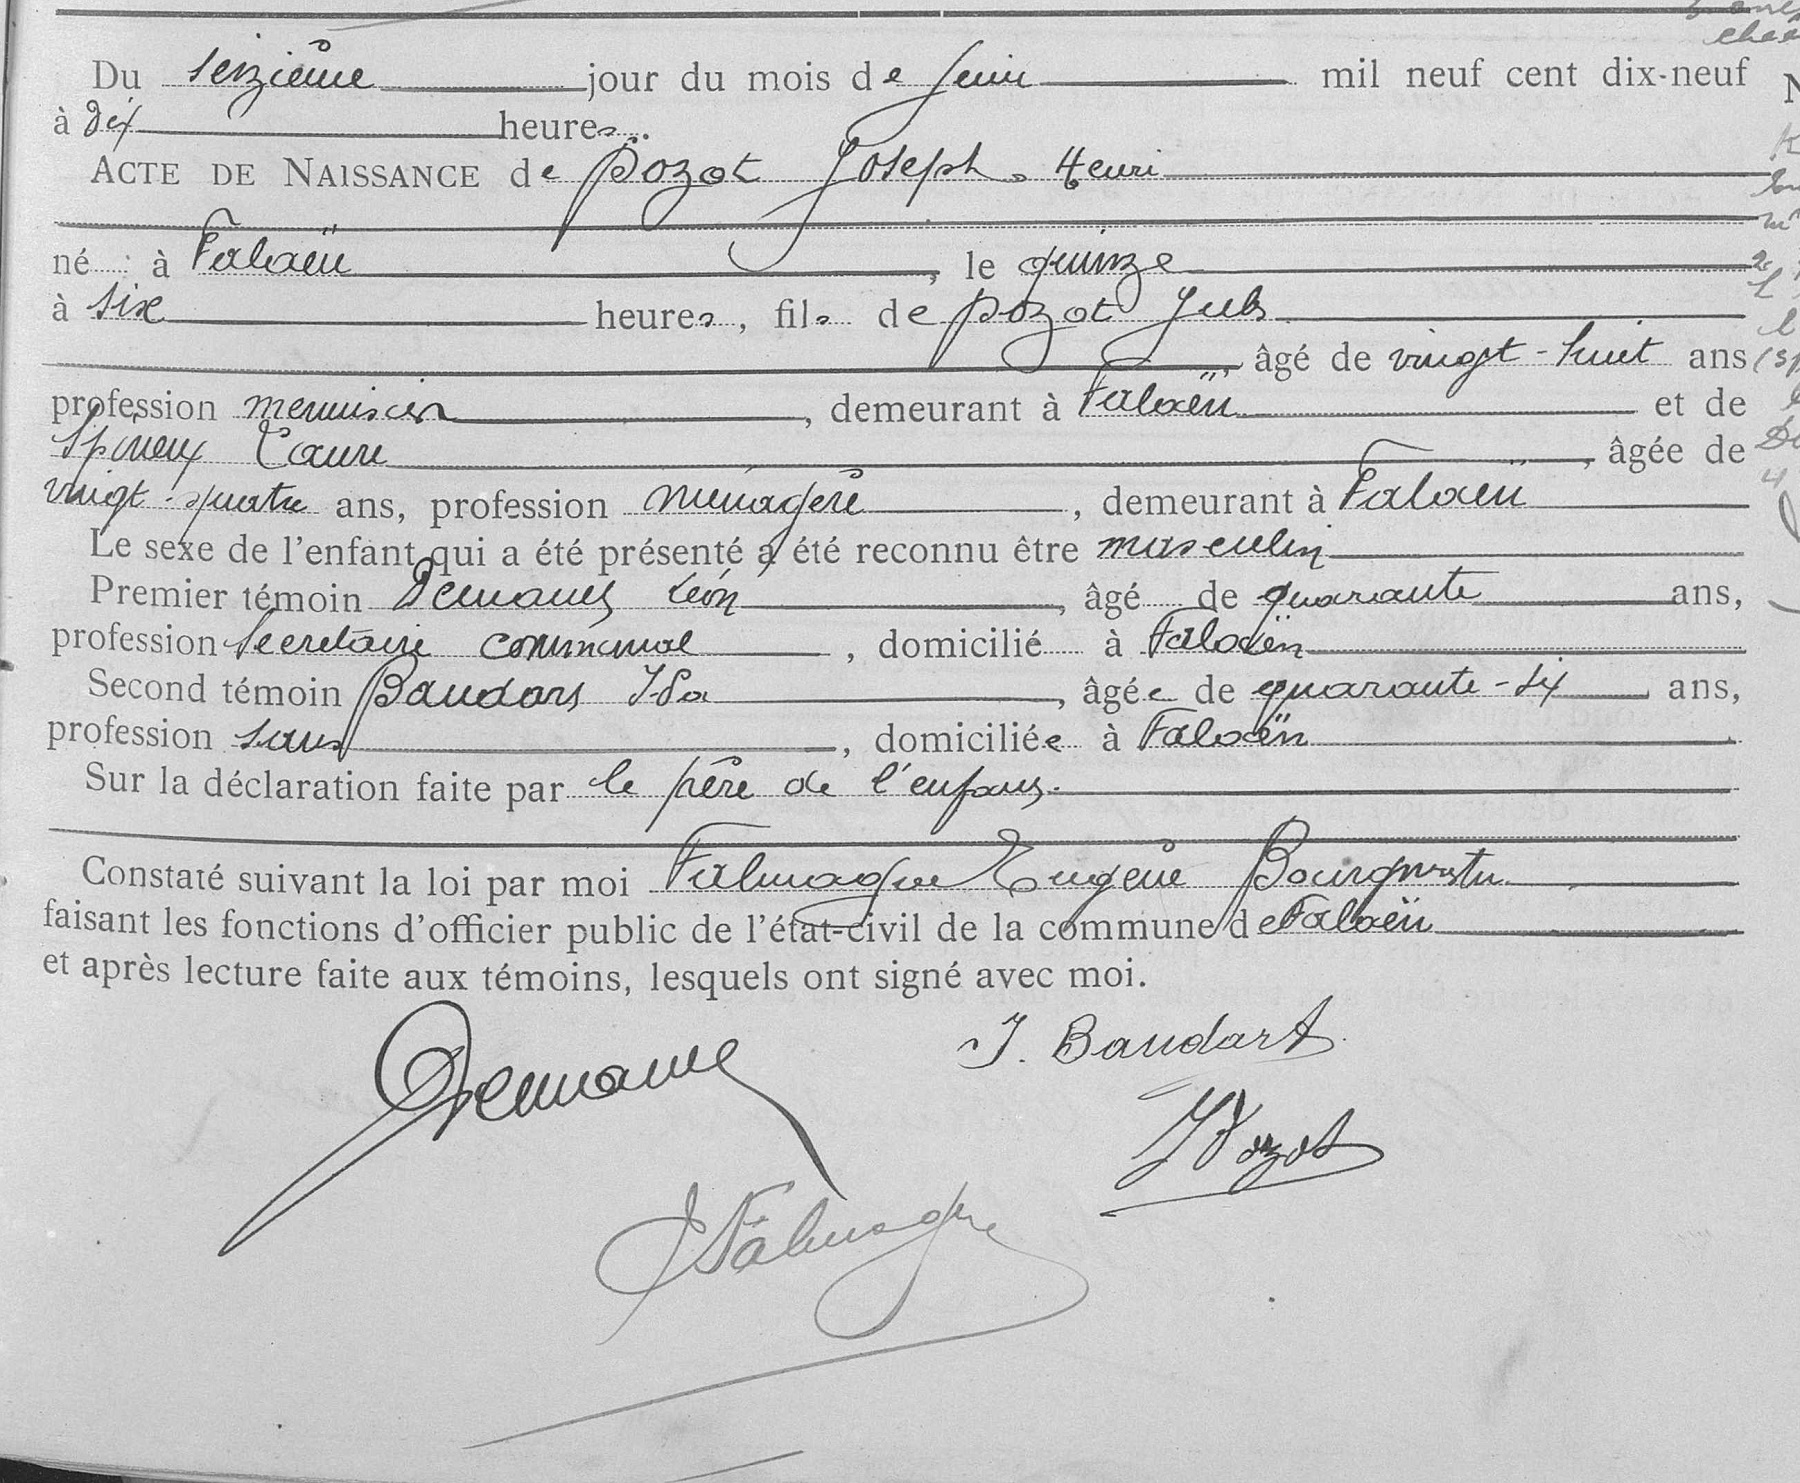 Du seizième jour du mois de Juin mil neuf cent dix-neuf
à dix heures.
ACTE DE NAISSANCE de Pozot Joseph, Henri
né à Falaën, le quinze
à six heures, fils de Pozot Jules
, âgé de vingt-huit ans
profession menuisier, demeurant à Falaën et de
Laure, âgée de
vingt-quatre ans, profession ménagère, demeurant à Falaën
Le sexe de l'enfant qui a été présenté a été reconnu être masculin
Premier témoin Demanet Léon, âgé de quarante ans,
profession Secrétaire communal, domicilié à Falaën
Second témoin Baudart Ida, âgée de quarante-six ans,
profession sans, domiciliée à Falaën
Sur la déclaration faite par le père de l'enfant.
Constaté suivant la loi par moi Falmagne Eugène Bourgmestre
faisant les fonctions d'officier public de l'état-civil de la commune de Falaën
et après lecture faite aux témoins, lesquels ont signé avec moi.
I. Baudart
Demanet
J Pozot
Falmagne